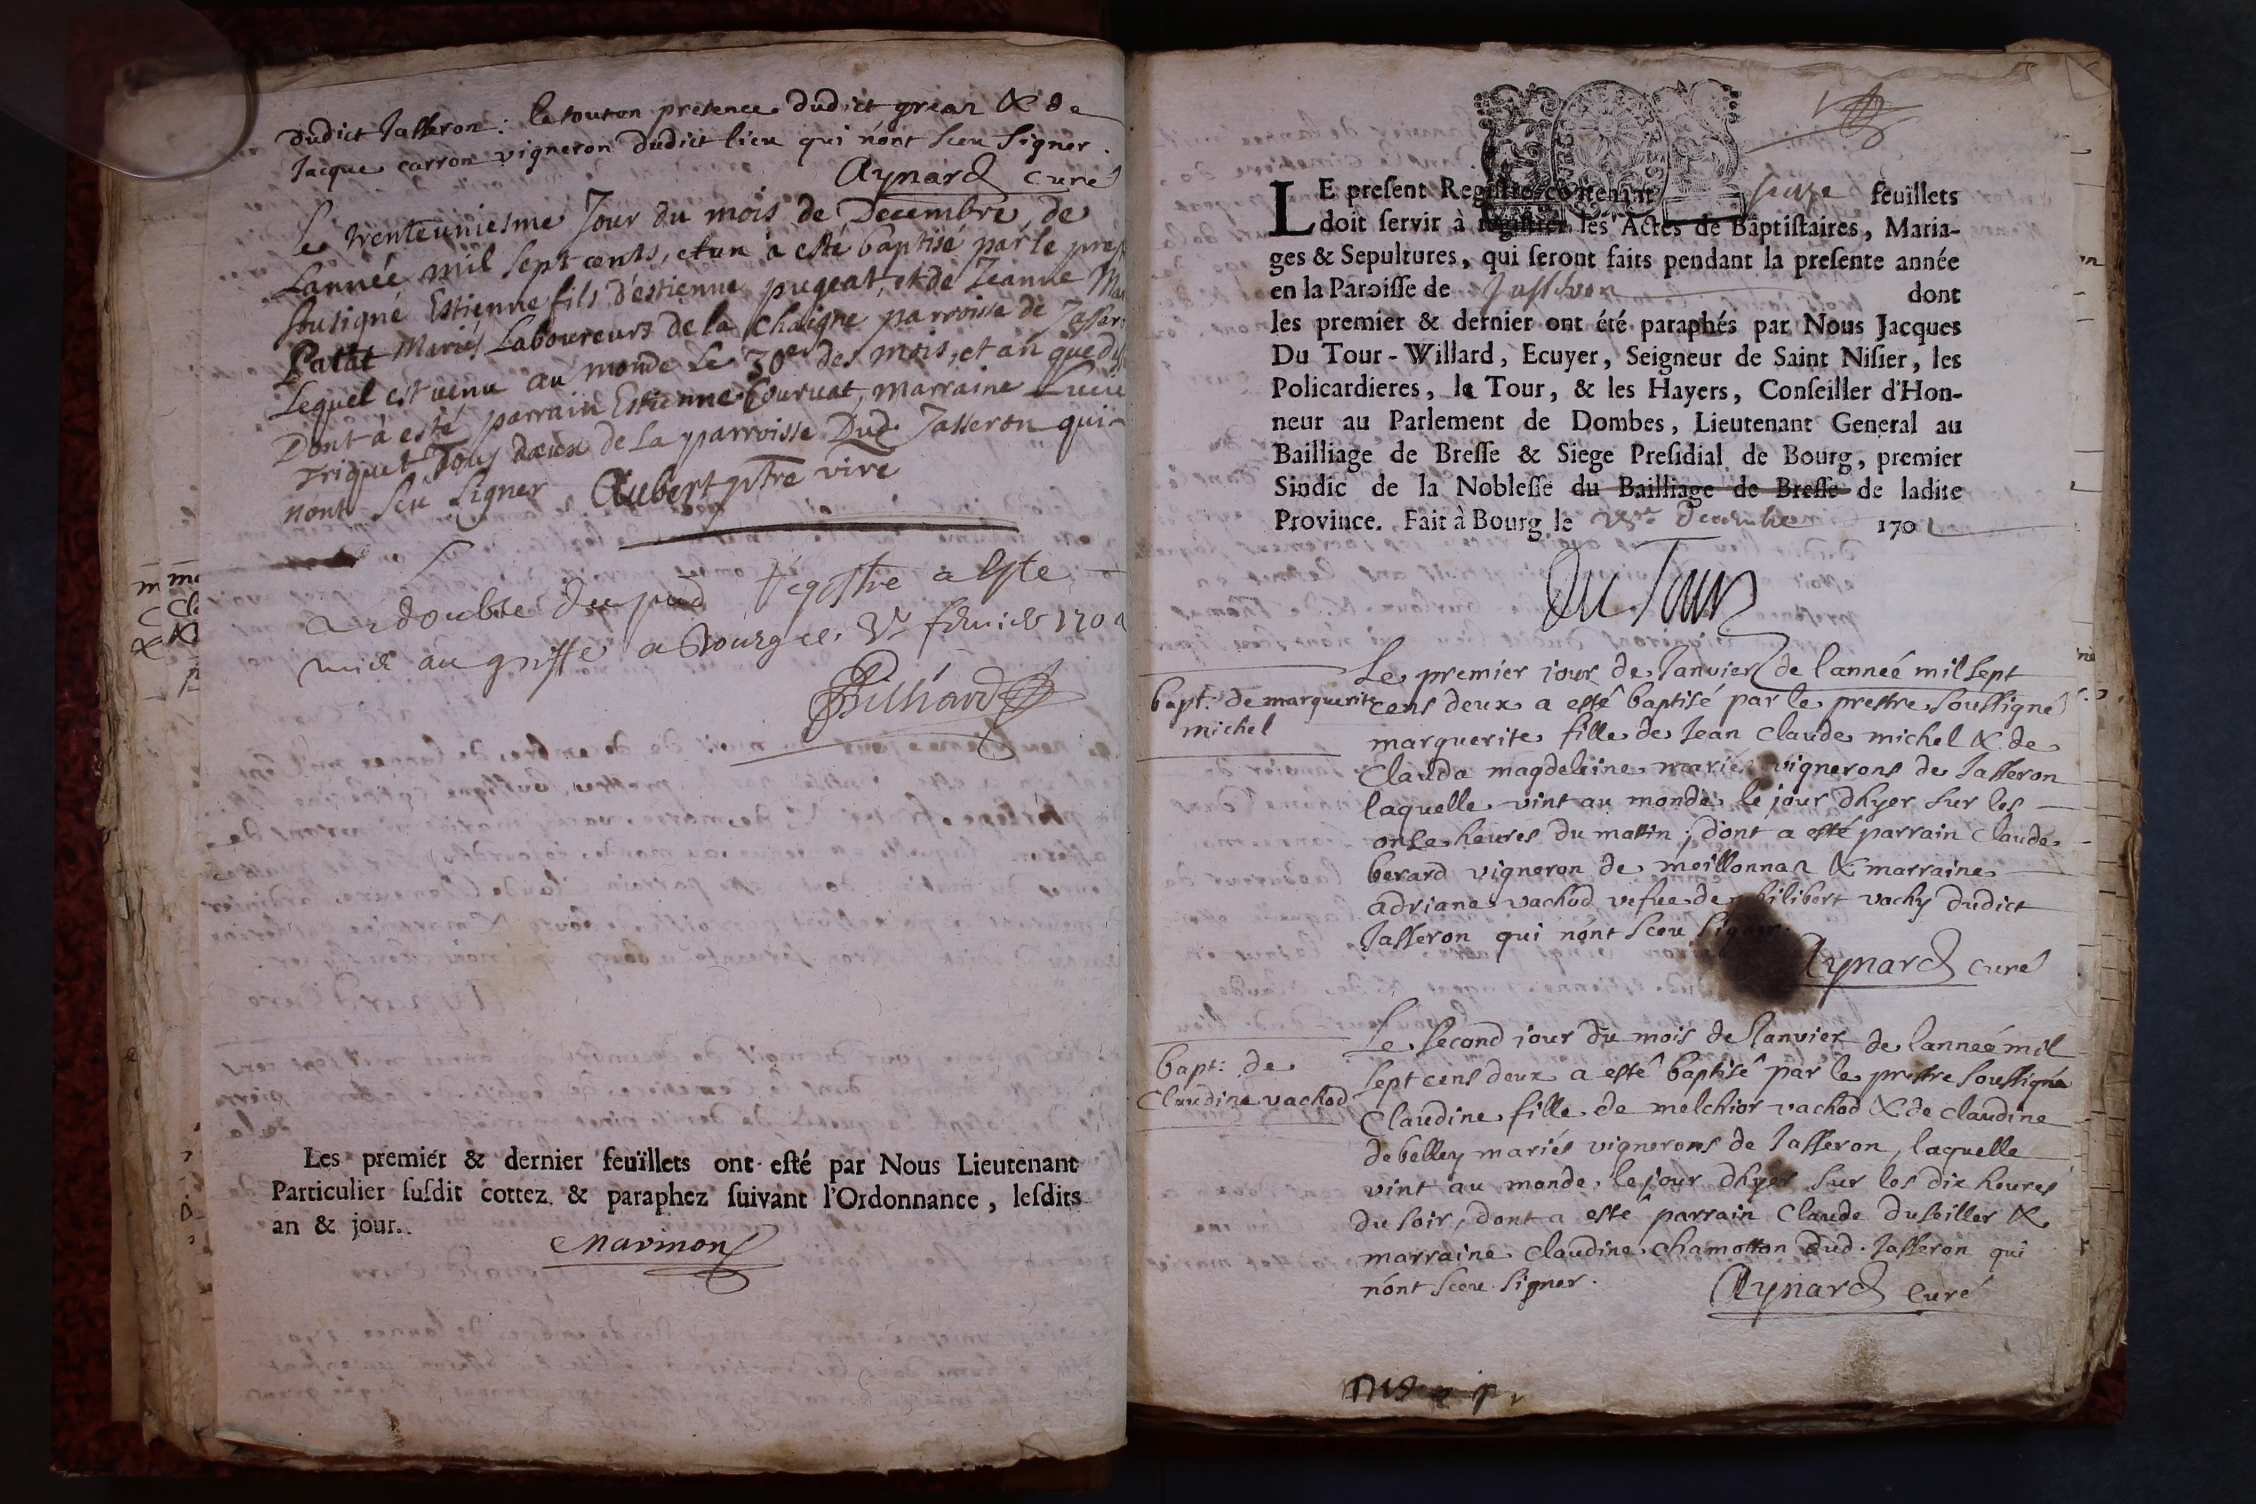 dudict Jasseron: le tout en presence dudict grean & de
Jacque carron vigneron dudict lieu qui n'ont sceu signer.
Aynard curé
Le trenteuniesme Jour du mois de Decembre, de
Lannée mil sept cents, et un à esté baptisé par le
sousigné Estienne fils d'estienne pugeat, et de Jeanne
Palat Mariés Laboureurs de la Chaigne parroisse de
Lequel est venu au monde Le 30er des mois, et an que
Dont à esté parrain Estienne Couruat, marraine Lucie
triquet Tous deux de La parroisse Dud. Jasseron qui
n'ont sçu signer. Aubert ptre vire
double du registre a este
mis au greffe a Bourg ce fevrier 170
Billiard
Les premier & dernier feuïllets ont esté par Nous Lieutenant
Particulier susdit cottez & paraphez suivant l'Ordonnance, lesdits
an & jour.
Marinon
LE present Registre contenant seize feuïllets
doit servir à les Actes de Baptistaires, Maria-
ges & Sepultures, qui seront faits pendant la presente année
en la Paroisse de Jasseron dont
les premier & dernier ont été paraphés par Nous Jacques
Du Tour-Willard, Ecuyer, Seigneur de Saint Nisier, les
Policardieres, la Tour, & les Hayers, Conseiller d'Hon-
neur au Parlement de Dombes, Lieutenant General au
Bailliage de Bresse & Siege Presidial de Bourg, premier
Sindic de la Noblesse du Bailliage de Bresse de ladite
Province. Fait à Bourg le Decembre 1701
Du Tour
bapt. de marguerite
michel
Le premier iour de Janvier de l'anneé mil sept
cens deux a esté baptisé par le prestre soussigné
marguerite fille de Jean claude michel & de
Clauda magdeleine mariés vignerons de Jasseron
laquelle vint au monde le jour dhyer sur les
onse heures du matin; dont a esté parrain claude
berard vigneron de meillonnaz & marraine
adriane vachod vefue de philibert vachy dudict
Jasseron qui n'ont sceu signer.
Aynard curé
bapt: de
Claudine vachod
Le second iour du mois de Janvier de l'anneé mil
sept cens deux a esté baptisé par le prestre soussigné
Claudine fille de melchior vachod & de claudine
debelley mariés vignerons de Jasseron, laquelle
vint au monde le jour dhyer sur les dix heures
du soir, dont a esté parrain Claude duseiller &
marraine claudine chamotton dud. Jasseron qui
n'ont sceu signer.
Aynard Curé